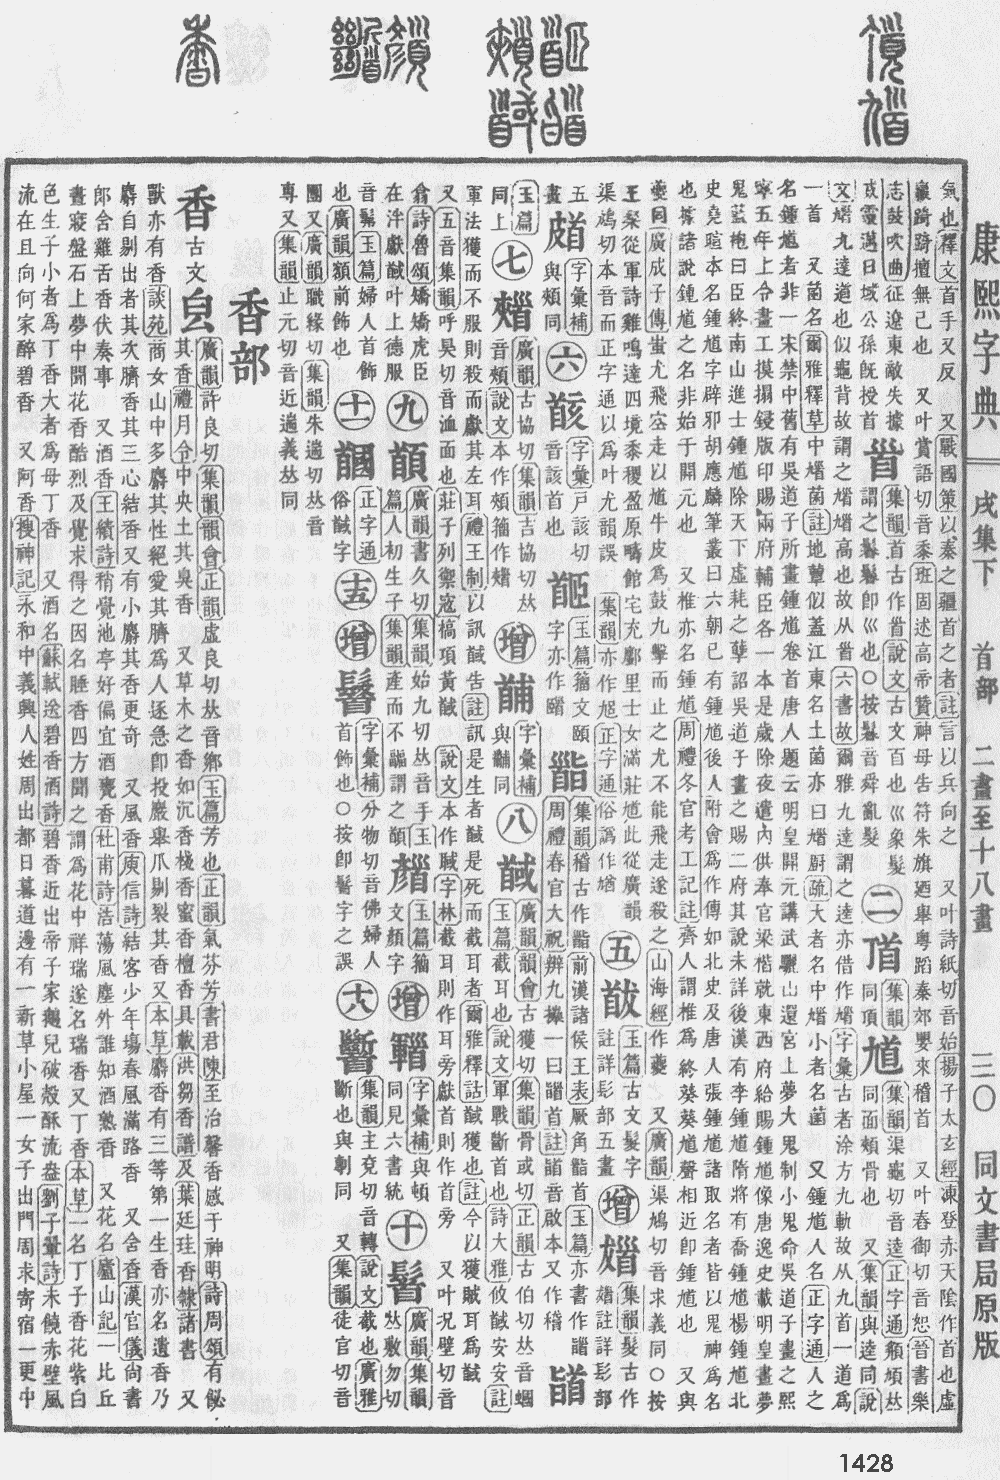 康熙字典 戌集下 首部 二畫至十八畫 三〇 同文書局原版
氣也釋文首手又反 又戰國策以秦之疆首之者註言以兵向之 又叶詩紙切音始揚子太玄經凍登赤天陰作首也虛
巖踦踦擅無己也 又叶賞語切音黍班固述高帝贊神母告符朱旗廼舉粵蹈秦郊嬰來稽首 又叶春御切音恕晉書樂
志鼓吹曲征遼東敵失據
威靈邁日域公孫旣授首
𦣻
集韻首古作𦣻說文古文百也巛象髮
謂之鬊鬊卽巛也○按鬊音舜亂髮
二
集韻
同頂
馗
集韻渠龜切音逵正字通頯頄𠀤
同面頰骨也 又集韻與逵同說
文九達道也似龜背故謂之馗馗高也故从𦣻六書故爾雅九達謂之逵亦借作馗字彙古者涂方九軌故从九首一道爲
一首 又菌名爾雅釋草中馗菌註地蕈似蓋江東名土菌亦曰馗厨疏大者名中馗小者名菌 又鍾馗人名正字通人之
名鍾馗者非一宋禁中舊有吳道子所畫鍾馗卷首唐人題云明皇開元講武驪山還宮上夢大鬼制小鬼命吳道子畫之熙
寧五年上令畫工摸搨鋟版印賜兩府輔臣各一本是歲除夜遣內供奉官梁楷就東西府給賜鍾馗像唐逸史載明皇晝夢
鬼藍袍曰臣終南山進士鍾馗除天下虛耗之孽詔吳道子畫之賜二府其說未詳後漢有李鍾馗隋將有喬鍾馗楊鍾馗北
史堯暄本名鍾馗字辟邪胡應麟筆叢曰六朝已有鍾馗後人附會爲作傳如北史及唐人張鍾馗諸取名者皆以鬼神爲名
也據諸說鍾馗之名非始于開元也 又椎亦名鍾馗周禮冬官考工記註齊人謂椎爲終葵葵馗聲相近卽鍾馗也 又與
夔同廣成子傳蚩尤飛空走以馗牛皮爲鼓九擊而止之尤不能飛走遂殺之山海經作夔 又廣韻渠鳩切音求義同○按
王粲從軍詩雞鳴達四境黍稷盈原疇館宅充鄽里士女滿莊馗此從廣韻
渠鳩切本音而正字通以爲叶尤韻誤
五
集韻亦作尯正字通俗譌作馗
玉篇古文髮字
註詳髟部五畫
增
集韻髮古作
註詳髟部
五
畫
字彙補
與頰同
六
字彙戸該切
音該首也
玉篇籀文頤
字亦作䪞
䭫
集韻稽古作䭫前漢諸侯王表厥角䭫首玉篇亦書作
周禮春官大祝辨九𢷎一曰䭫首註䭫音啟本又作稽
玉篇
同上
七
廣韻古協切集韻吉協切𠀤
音頰說文本作頰籀作
增
字彙補
與𩠹同
八
馘
廣韻韻會古獲切集韻骨或切正韻古伯切𠀤音蟈
玉篇截耳也說文軍戰斷首也詩大雅攸馘安安註
軍法獲而不服則殺而獻其左耳禮王制以訊馘告註訊是生者馘是死而截耳者爾雅釋詁馘獲也註今以獲賊耳爲馘
又五音集韻呼臭切音洫面也莊子列禦寇槁項黃馘 說文本作聝字林截耳則作耳旁獻首則作首旁 又叶况壁切音
翕詩魯頌矯矯虎臣
在泮獻馘叶上德服
九
廣韻書久切集韻始九切𠀤音手玉
篇人初生子集韻產而不䠼謂之
玉篇籀
文顏字
增
字彙補與頓
同見六書統
十
鬠
廣韻集韻
𠀤敷勿切
音髴玉篇婦人首飾
也廣韻額前飾也
十一
正字通
俗馘字
十五
增
字彙補分物切音佛婦人
首飾也○按卽䯱字之誤
十八
集韻主兗切音轉說文截也廣雅
斷也與剸同 又集韻徒官切音
團又廣韻職緣切集韻朱遄切𠀤音
專又集韻止元切音近遄義𠀤同
香部
香
古文
廣韻許良切集韻韻會正韻虛良切𠀤音鄉玉篇芳也正韻氣芬芳書君陳至治馨香感于神明詩周頌有飶
其香禮月令中央土其臭香 又草木之香如沉香棧香蜜香檀香具載洪芻香譜及葉廷珪香錄諸書 又
獸亦有香談苑商女山中多麝其性絕愛其臍爲人逐急卽投巖舉爪剔裂其香又本草麝香有三等第一生香亦名遺香乃
麝自剔出者其次臍香其三心結香又有小麝其香更奇 又風香庾信詩結客少年塲春風滿路香 又舍香漢官儀尙書
郎舍雞舌香伏奏事 又酒香王績詩稍覺池亭好偏宜酒甕香杜甫詩浩蕩風塵外誰知酒熟香 又花名廬山記一比丘
晝寢盤石上夢中聞花香酷烈及覺求得之因名睡香四方聞之謂爲花中祥瑞遂名瑞香又丁香本草一名丁子香花紫白
色生子小者爲丁香大者爲母丁香 又酒名蘇軾送碧香酒詩碧香近出帝子家鵝兒破殼酥流盎劉子翬詩未饒赤壁風
流在且向何家醉碧香 又阿香搜神記永和中義興人姓周出都日暮道邊有一新草小屋一女子出門周求寄宿一更中
1428